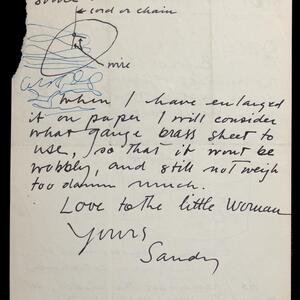 cord or chain
wire
When I have enlarged
it on paper I will consider
what gauge brass sheet to
use, so that it wont be
wobbly, and still not weigh
too damn much.
Love to the little woman
Yours
Sandy